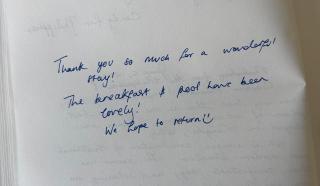 Thank you so much for a wonderful
stay!
The breakfast & pool have been
lovely!
We hope to return